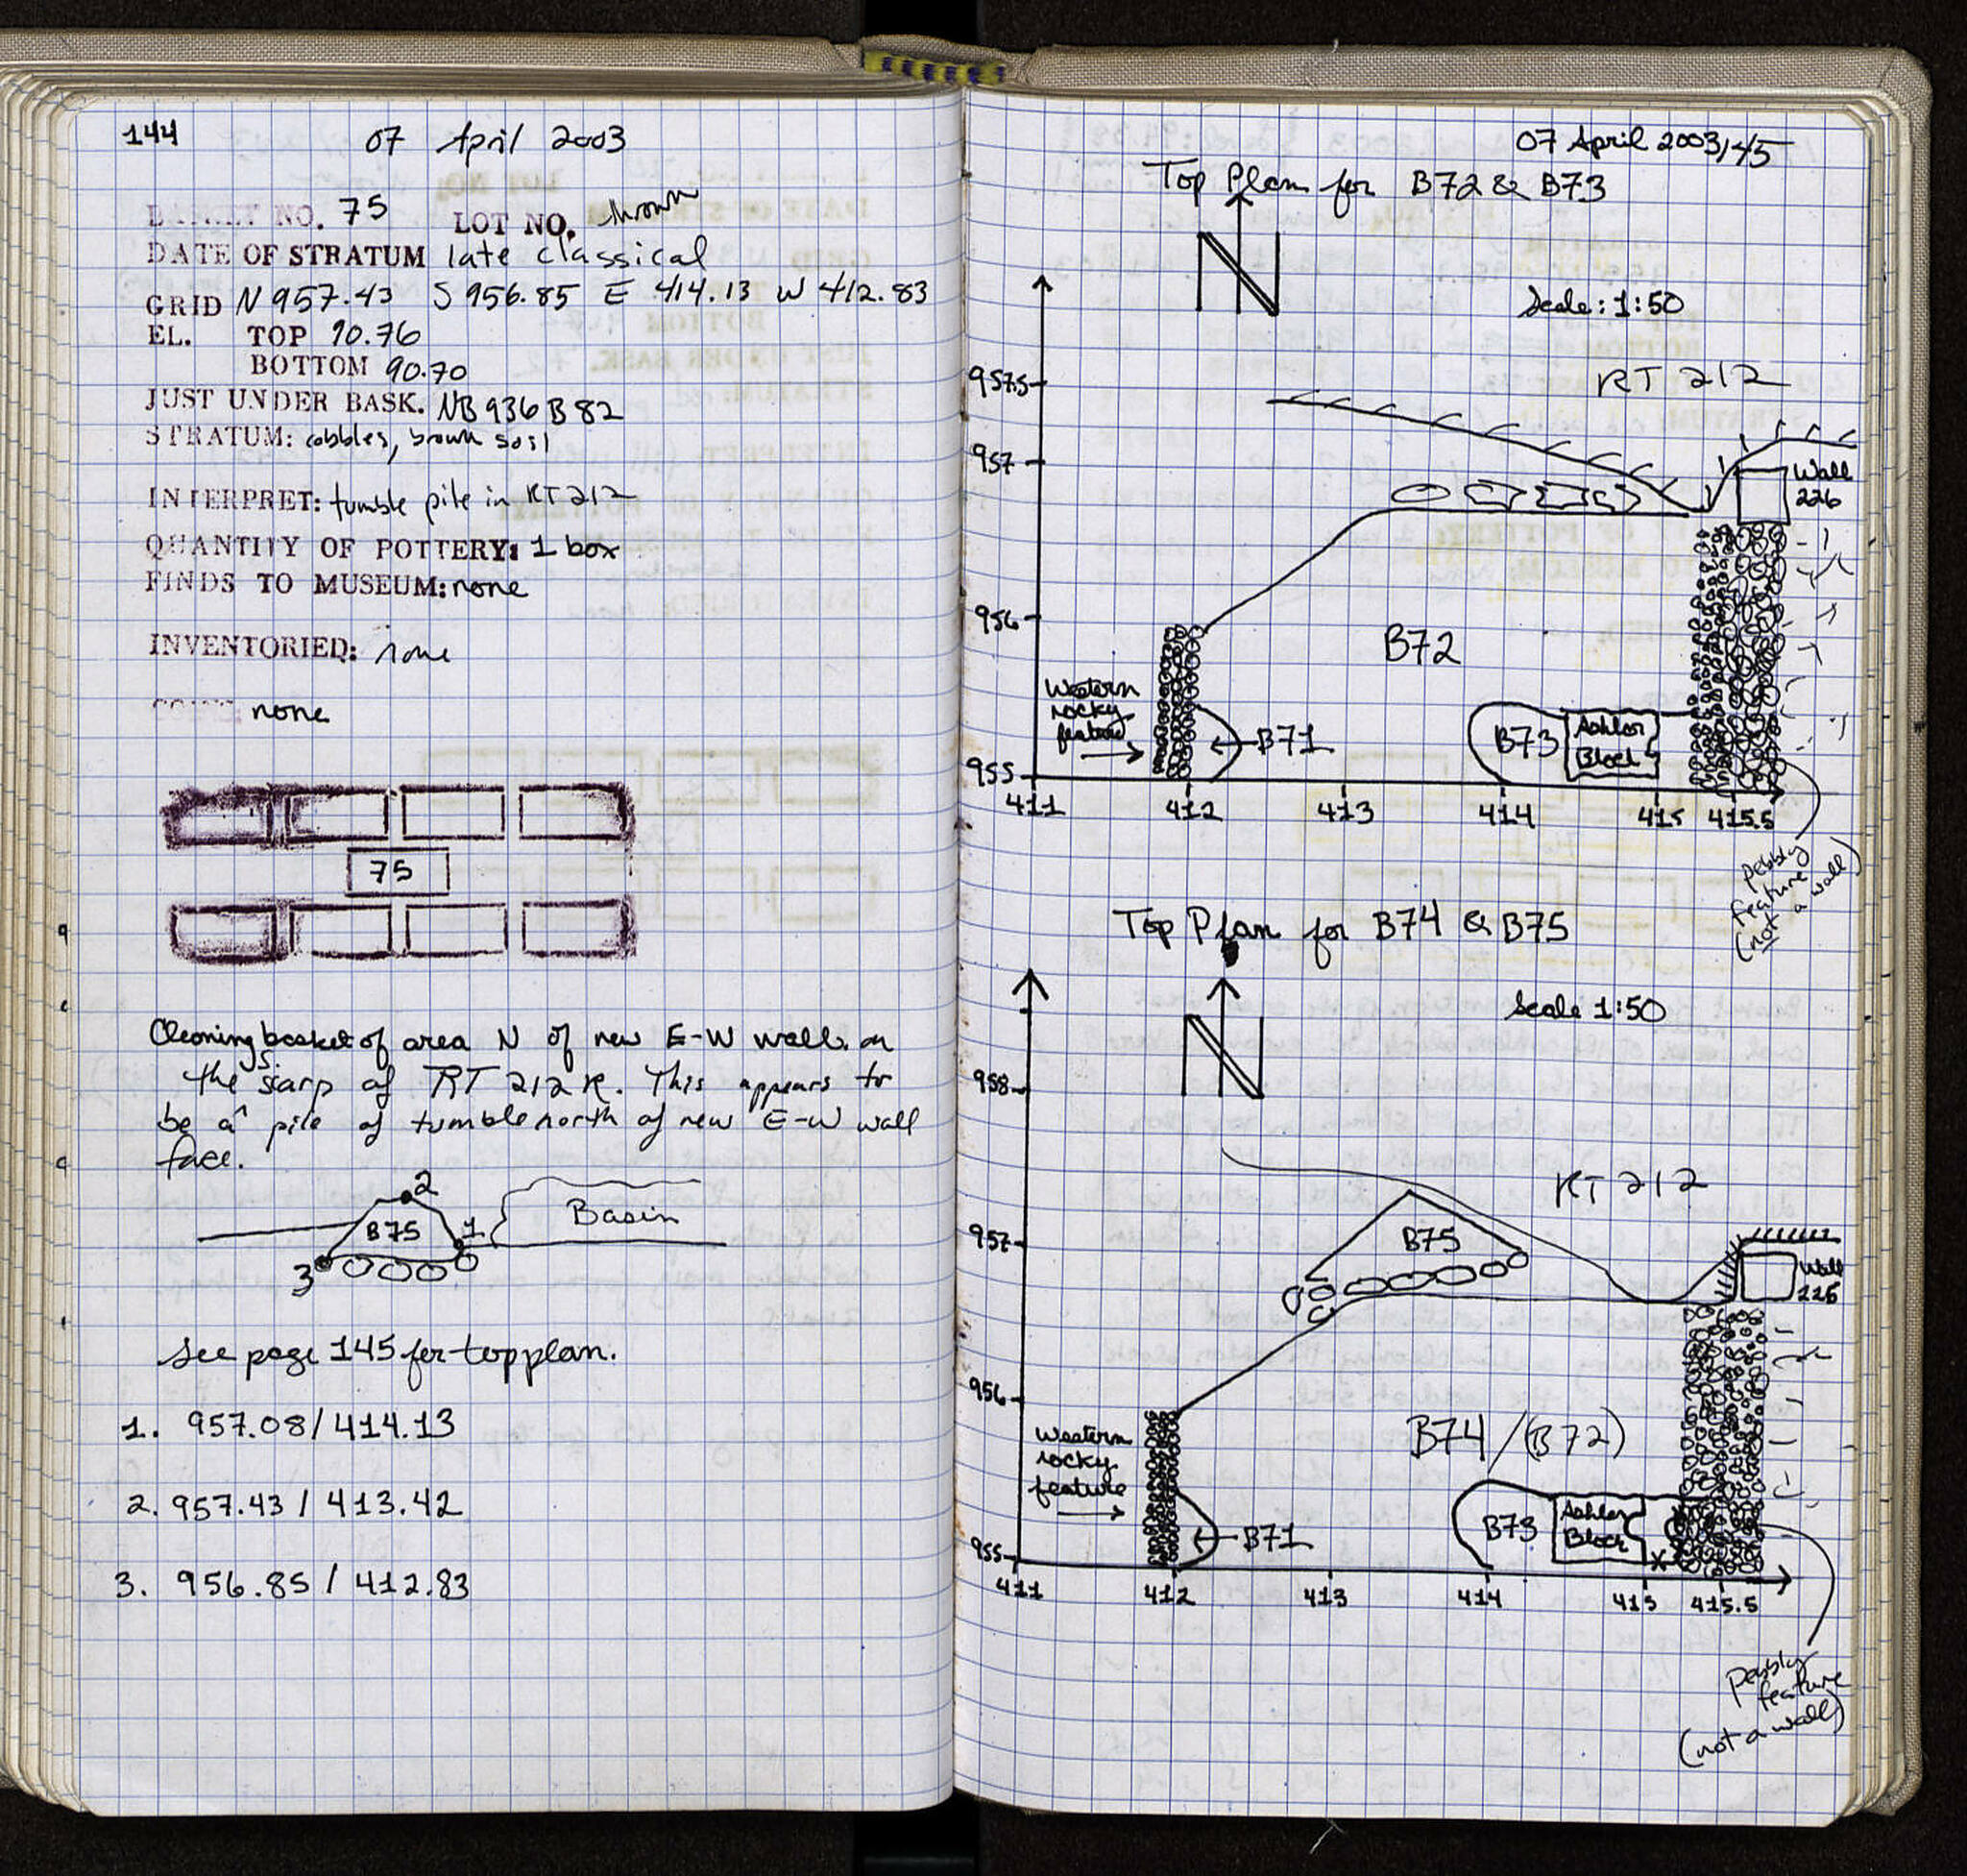 144
07 April 2003
BASKET NO. 75 LOT NO. thrown
DATE OF STRATUM late classical
GRID N 957.43 S 956.85 E 414.13 W 412.83
EL. TOP 90.76
BOTTOM 90.70
JUST UNDER BASK. NB 936 B 82
STRATUM: cobbles, brown soil
INTERPRET: tumble pile in RT 212
QUANTITY OF POTTERY: 1 box
FINDS TO MUSEUM: none
INVENTORIED: none
COINS: none
75
Cleaning basket of area N of new E-W wall on
the scarp of RT 212. This appears to
be a pile of tumble north of new E-W wall
face.
2
B75
1
Basin
3
see page 145 for top plan.
1. 957.08 / 414.13
2. 957.43 / 413.42
3. 956.85 / 412.83
07 April 2003/145
Top Plan for B72 & B73
N
Scale: 1:50
957.5
RT 212
957
Wall
226
956
B72
Western
rocky
feature
B71
B73
Ashlar
Block
955
411
412
413
414
415
415.5
pebbly
feature
(not a wall)
Top Plan for B74 & B75
N
Scale 1:50
958
RT 212
957
B75
Wall
226
956
B74/(B72)
Western
rocky
feature
B71
B73
Ashlar
Block
x
955
411
412
413
414
415
415.5
pebbly
feature
(not a wall)